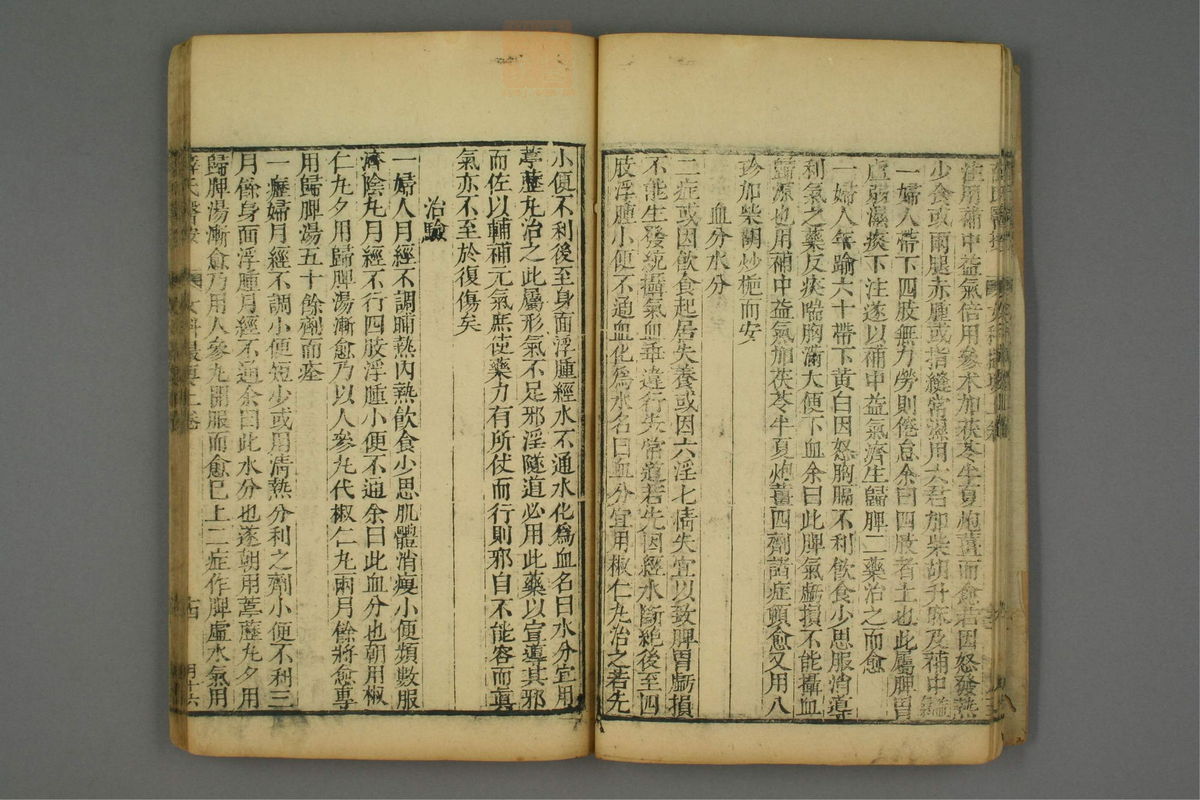 注用補中益氣倍用參朮加茯苓半夏炮薑而愈若因怒發熱
少食或兩腿赤腫或指縫常濕用六君加柴胡升麻及補中益氣
一婦人帶下四肢無力勞則倦怠余曰四肢者土也此屬脾胃
虛弱濕痰下注遂以補中益氣濟生歸脾二藥治之而愈
一婦人年踰六十帶下黃白因怒胸膈不利飲食少思服消導
利氣之藥反痰喘胸滿大便下血余曰此脾氣虧損不能攝血
歸源也用補中益氣加茯苓半夏炮薑四劑諸症頓愈又用八
珍加柴胡炒梔而安
血分水分
二症或因飲食起居失養或因六淫七情失宜以致脾胃虧損
不能生發統攝氣血乖違行失常道若先因經水斷絕後至四
肢浮腫小便不通血化爲水名曰血分宜用椒仁丸治之若先
小便不利後至身面浮腫經水不通水化爲血名曰水分宜用
葶藶丸治之此屬形氣不足邪淫隧道必用此藥以宣導其邪
而佐以輔補元氣庶使藥力有所仗而行則邪自不能容而眞
氣亦不至於復傷矣
治驗
一婦人月經不調晡熱內熱飲食少思肌體消瘦小便頻數服
濟陰丸月經不行四肢浮腫小便不通余曰此血分也朝用椒
仁丸夕用歸脾湯漸愈乃以人參丸代椒仁丸兩月餘將愈專
用歸脾湯五十餘劑而痊
一孀婦月經不調小便短少或用清熱分利之劑小便不利三
月餘身面浮腫月經不通余曰此水分也遂朝用葶藶丸夕用
歸脾湯漸愈乃用人參丸間服而愈已上二症作脾虛水氣用
薛氏醫按 女科撮要上卷